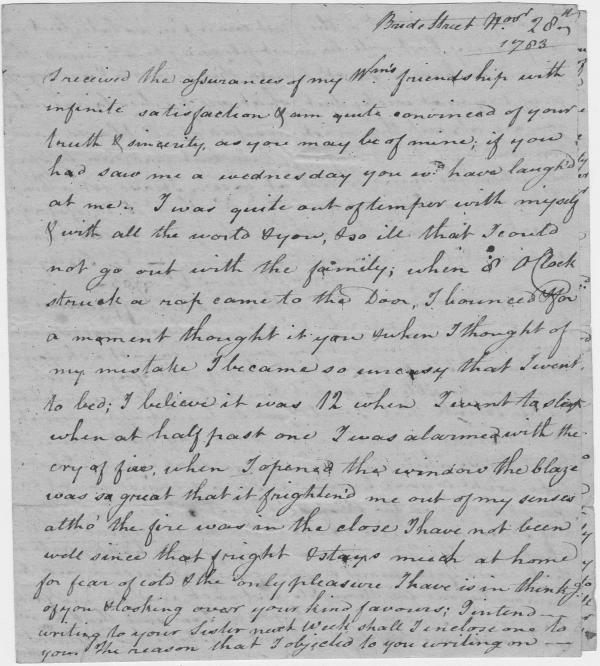 Bride Street Novr 28th
1783
I received the assurances of my Wms friendship with
infinite satisfaction & am quite convinced of your
truth & sincerity, as you may be of mine; if you
had saw me a wednesday you wd have laugh'd
at me. I was quite out of temper with myself
& with all the world & you, & so ill that I could
not go out with the family; when 8 O Clock
struck a rap came to the Door, I bounced & for
a moment thought it you & when I thought of
my mistake I became so uneasy that I went
to bed; I believe it was 12 when I went to sleep
when at half past one I was alarmed with the
cry of fire, when I opened the window the blaze
was so great that it frighten'd me out of my senses
altho' the fire was in the close I have not been
well since that fright & stays much at home
for fear of cold & the only pleasure I have is in thinkg
of you & looking over your kind favours; I intend
writing to your Sister next Week shall I inclose one to
you. The reason that I objected to you writing on